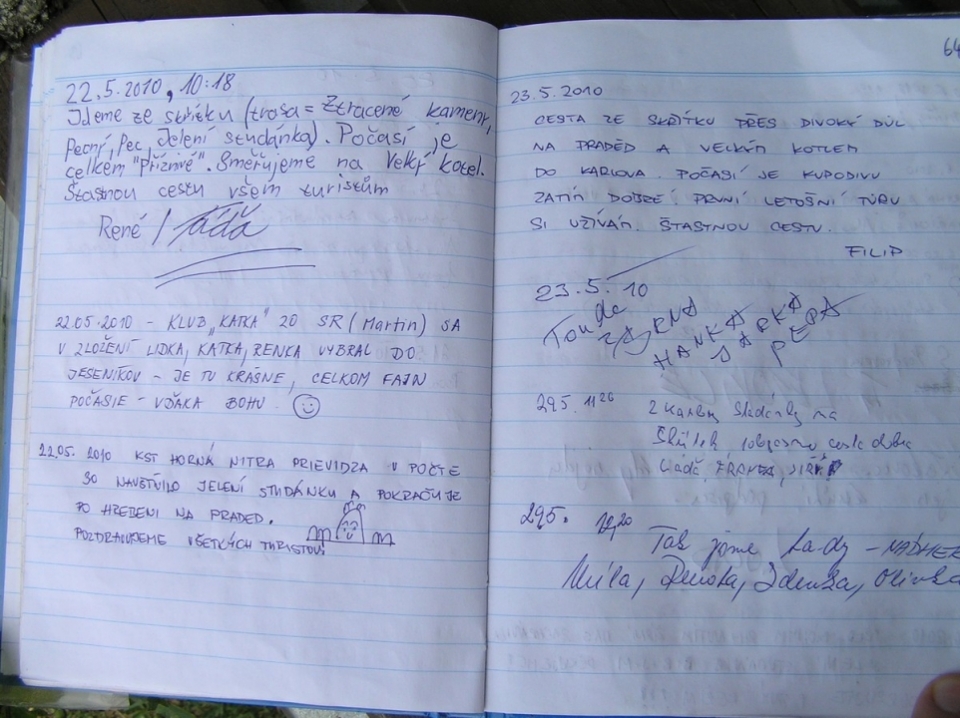 22.5.2010, 10:18
Jdeme ze skřítku (trasa = Ztracené kameny,
Pecný, Pec, Jelení studánka). Počasí je
celkem "příznivé". Směřujeme na Velký kotel.
Šťastnou cestu všem turistům
René / Táďa
22.05.2010 - KLUB „KATKA" ZO SR (Martin) SA
V ZLOŽENÍ LIDKA, KATKA, RENKA VYBRAL DO
JESENÍKOV - JE TU KRÁSNE, CELKOM FAJN
POČASIE - VĎAKA BOHU.
22.05. 2010 KST HORNÁ NITRA PRIEVIDZA V POČTE
30 NAVŠTÍVILO JELENÍ STUDÁNKU A POKRAČUJE
PO HREBENI NA PRADED.
POZDRAVUJEME VŠETKÝCH TURISTOV!
64
23.5.2010
CESTA ZE SKŘÍTKU PŘES DIVOKÝ DŮL
NA PRADĚD A VELKÝM KOTLEM
DO KARLOVA. POČASÍ JE KUPODIVU
ZATÍM DOBRÉ PRVNÍ LETOŠNÍ TÚRU
SI UŽÍVÁM. ŠŤASTNOU CESTU.
FILIP
23.5.10
Tonda
HANKA JARKA
PEPA
29.5. 11 26
Z Karlovy Studánky na
Skřítek
29.5. 12,20
Tak jsme tady - NÁDHER
Míla, Zdenka, Olinka